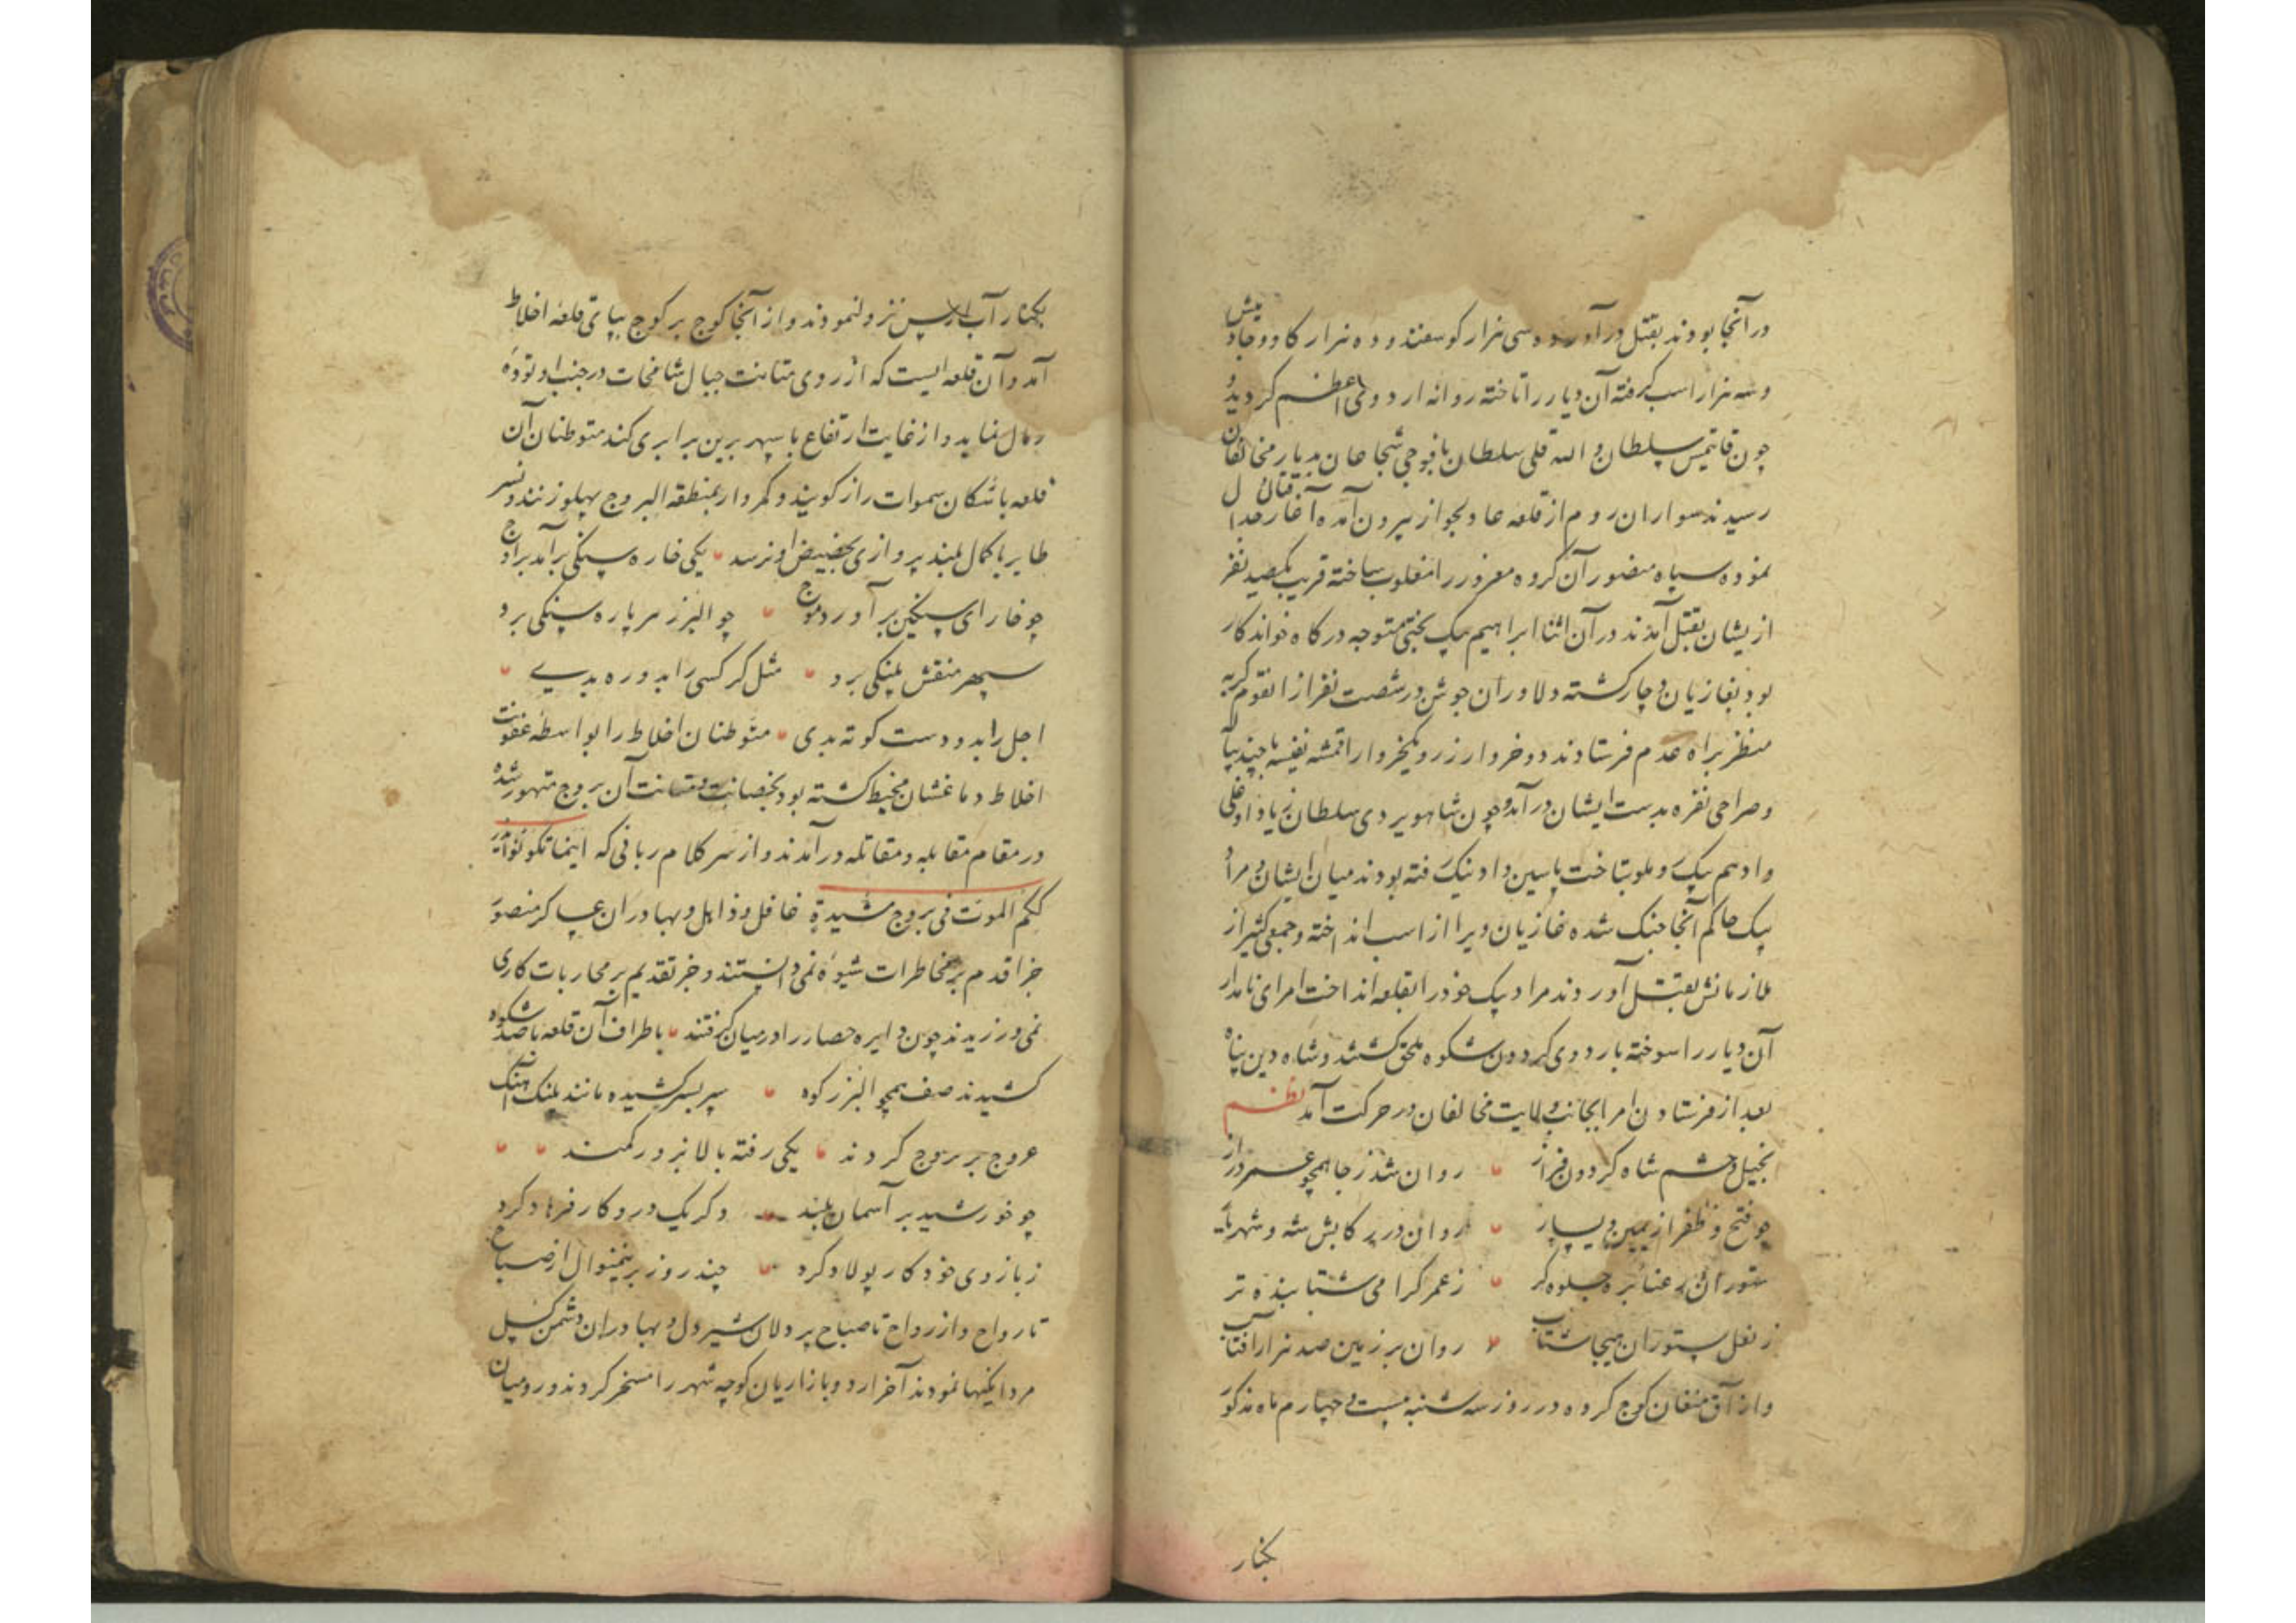 در آنجا بودند بقتل در آورده سی هزار کوسفند و ده هزار کاو و جاومیش
و سه هزار اسب کرفته آن دیار را تاخته روانه اردوی اعظم کردید و
چون قایتمیس سلطان و الله قلی سلطان با فوجی شجاعان بدیار مخالفان
رسیدند سواران روم از قلعه عادلجواز بیرون آمده آغاز جدال قتال
نموده سپاه منصور آن کروه مغرور را مغلوب ساخته قریب بیکصد نفر
از یشان بقتل آمدند در آن اثنا ابراهیم بیک بختی متوجه درکاه خواندکار
بود بغازیان دچار کشته دلاوران جوشن در شصت نفر از انقوم کریه
منظر براه عدم فرستادند دو خروار زر و یکخروار اقمشه نفیسه با چند پیاله
و صراحی نقره بدست ایشان در آمد و چون شاهویردی سلطان زیاد اوغلی
و ادهم بیک و ملو بتاخت پاسین و اونیک رفته بودند میان ایشان و مراد
بیک حاکم آنجا جنک شده غازیان ویرا از اسب انداخته و جمعی کثیر از
ملازمانش بقتل آوردند مراد بیک خود را بقلعه انداخت امرای نامدار
آن دیار را سوخته باردوی کردون شکوه ملحق کشتند و شاه دین پناه
بعد از فرستادن امرا بجانب ولایت مخالفان در حرکت آمد نظم
بخیل و حشم شاه کردون فراز روان شد ز جا همچو عمر دراز
چو فتح و ظفر از یمین و یسار روان در رکابش شه و شهریار
ستوران رعنا بره جلوه کر ز عمر کرامی شتابنده تر
ز نعل ستوران هیجا شتاب روان بر زمین صد هزار آفتاب
و از آق منغان کوچ کرده در روز سه شنبه بیست و چهارم ماه مذکور
بکنار
بکنار آب ارس نزول نمودند و از آنجا کوچ بر کوچ بپای قلعه اخلاط
آمد و آن قلعه ایست که از روی متانت جبال شامخات در جنب او توده
رمال نماید و از غایت ارتفاع با سپهر برین برابری کند متوطنان آن
قلعه با سکان سموات راز کویند و کمروار بمنطقه البروج پهلو زنند و نسر
طایر با کمال بلند پروازی بحضیض او نرسد یکی خاره سنکی برآمد براوج
چو خارای سنکین بر آورد موج چو البرز هر پاره سنکی برو
سپهر منقش پلنکی برو مثل کر کسی را بدو ره بدیے
اجل را بدو دست کوته بدی متوطنان اخلاط را بواسطه عفونت
اخلاط دماغشان مخبط کشته بود بحصانت و متانت آن بروج متهور شده
در مقام مقابله و مقاتله در آمدند و از سر کلام ربانی که اینما تکونوا یدر
ککم الموت فی بروج مشیدة غافل و ذاهل و بهادران عساکر منصور
جز اقدم بر مخاطرات شیوه نمی دانستند و جز تقدیم بر محاربات کاری
نمی ورزیدند چون دایره حصار را در میان کرفتند باطراف آن قلعه با صد شکوه
کشیدند صف همچو البرز کوه سپر بسر کشیده مانند پلنک آهنک
عروج بر بروج کردند یکی رفته بالا بزور کمند
چو خورشید بر آسمان بلند دکر یک درو کار فرهاد کرد
ز بازوی خود کار پولاد کرد چند روز برینمنوال از صباح
تا رواح و از رواح تا صباح پر دلان شیر دل و بهادران دشمن کسل
مردانکیها نمودند آخر اردو بازاریان کوچه شهر را مسخر کردند و رومیان